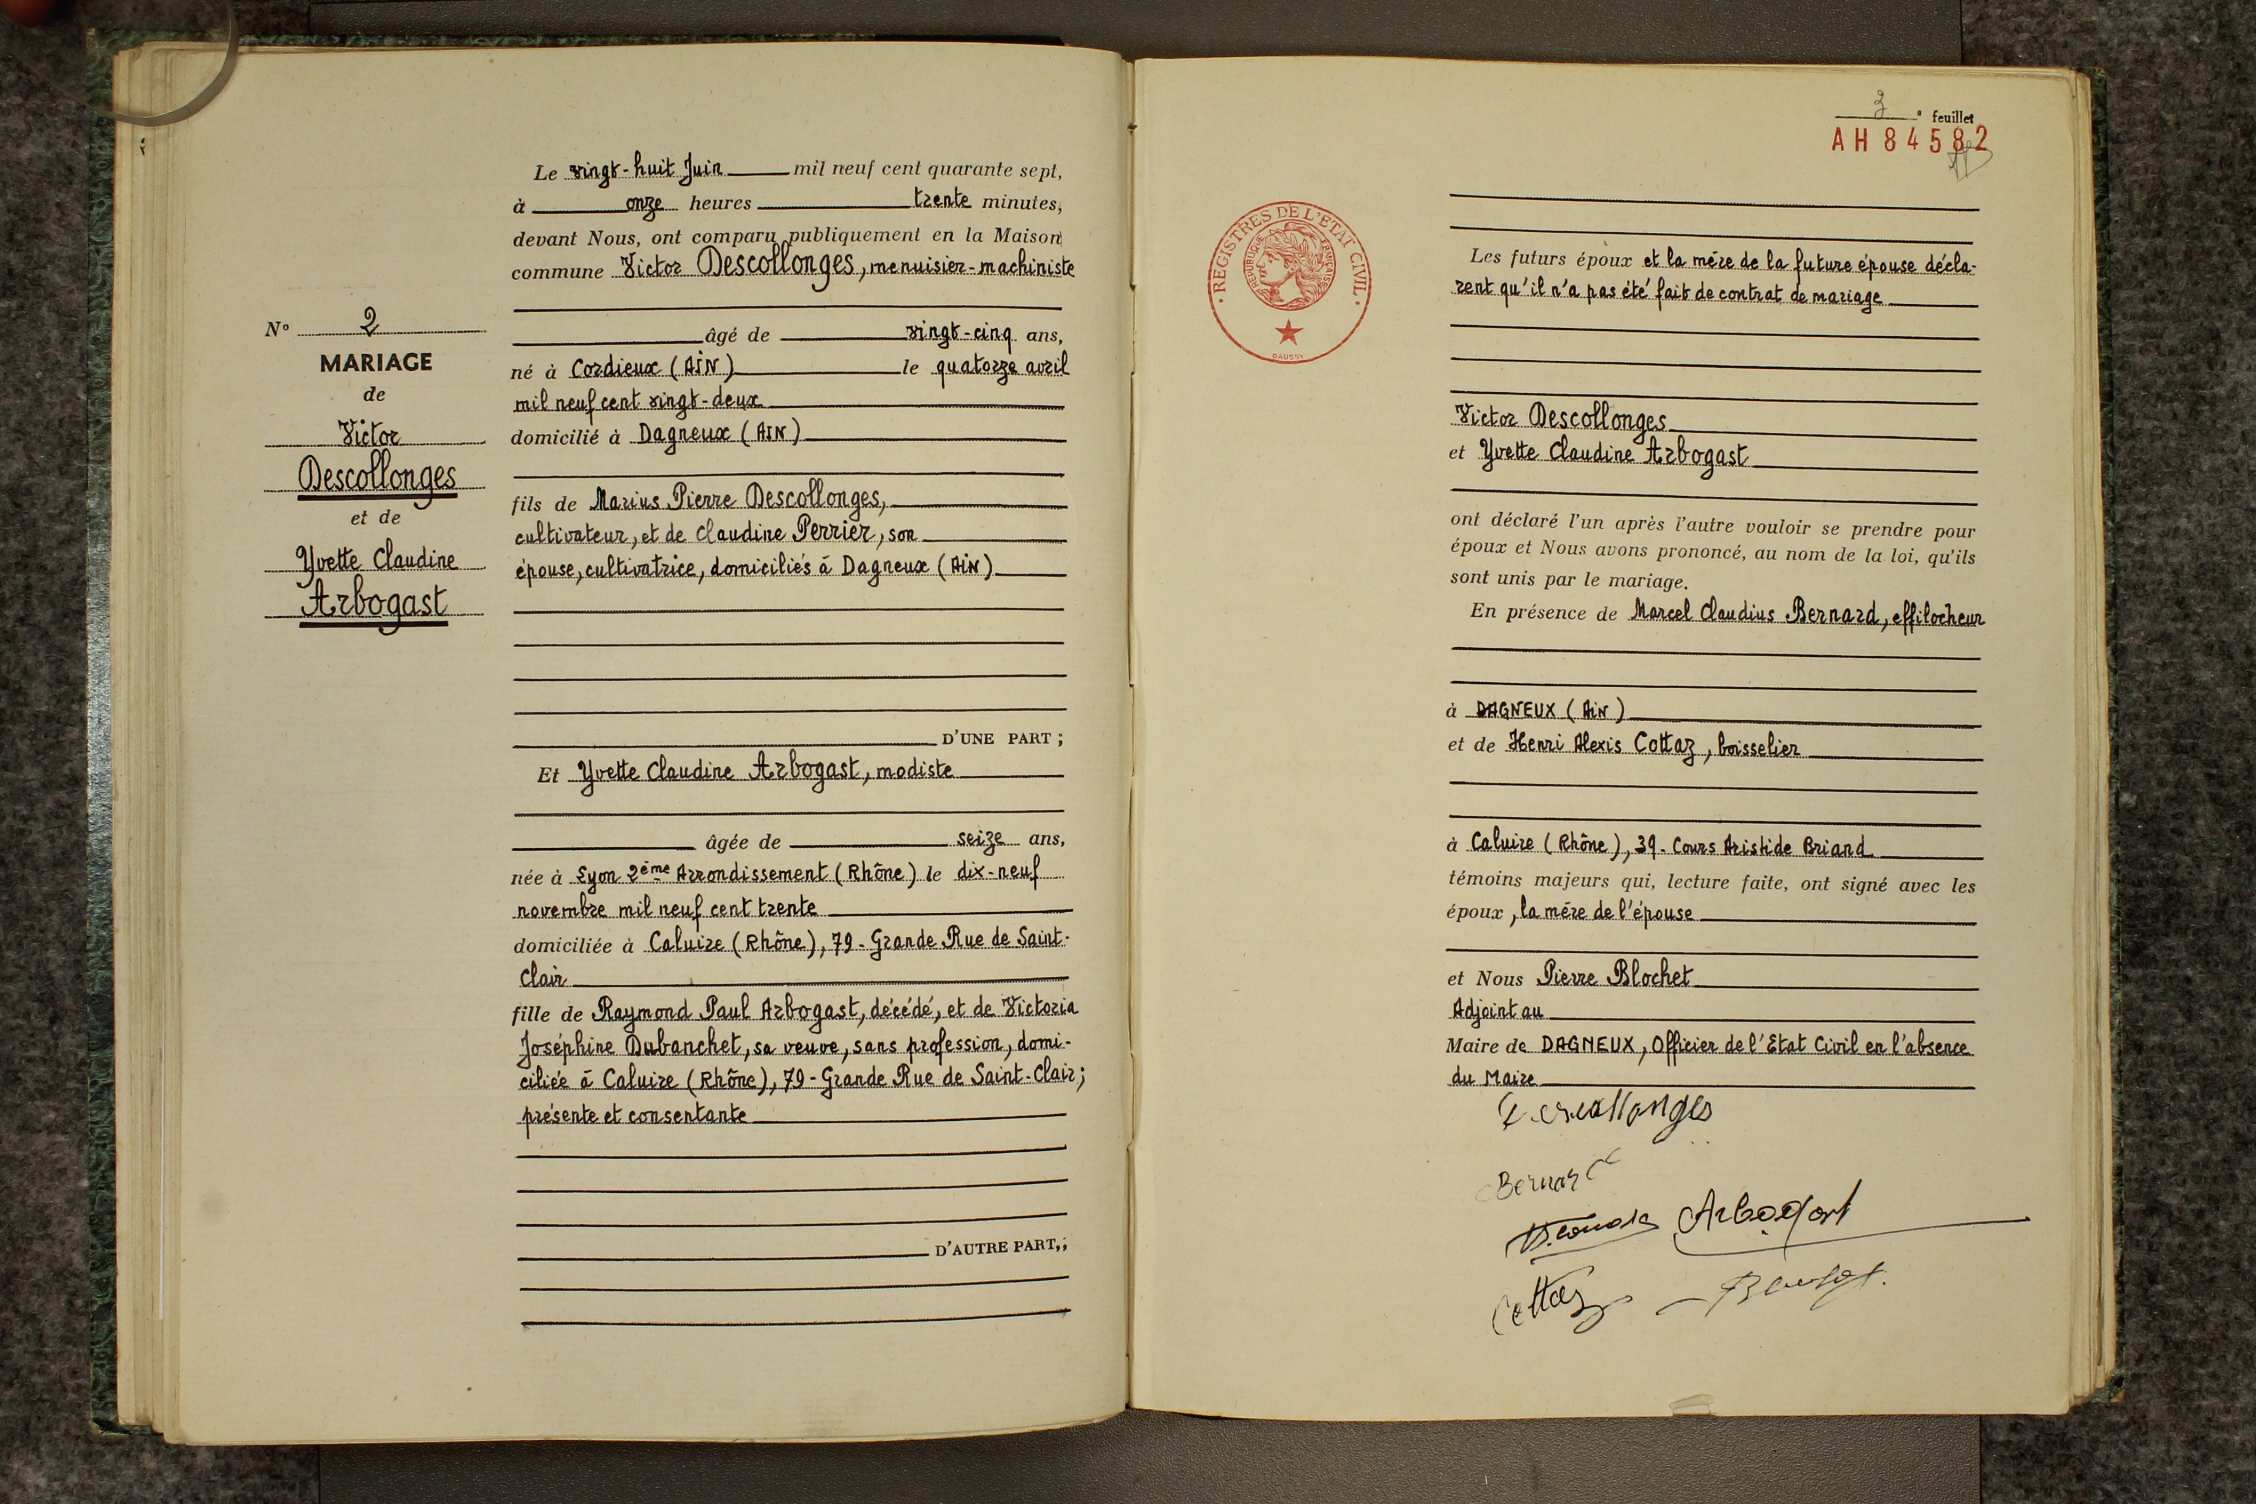 Le vingt-huit Juin mil neuf cent quarante sept,
à onze heures trente minutes,
devant Nous, ont comparu publiquement en la Maison
commune Victor Descollonges, menuisier-machiniste
âgé de vingt-cinq ans,
né à Cordieux (AIN) le quatorze avril
mil neuf cent vingt-deux
domicilié à Dagneux (AIN)
fils de Marius Pierre Descollonges,
cultivateur, et de Claudine Perrier, son
épouse, cultivatrice, domiciliés à Dagneux (AiN)
D'UNE PART ;
Et Yvette Claudine Arbogast, modiste
âgée de seize ans,
née à Lyon 2ème Arrondissement (Rhône) le dix-neuf
novembre mil neuf cent trente
domiciliée à Caluire (Rhône), 79-Grande Rue de Saint-
Clair
fille de Raymond Paul Arbogast, décédé, et de Victoria
Joséphine Dubanchet, sa veuve, sans profession, domi-
ciliée à Caluire (Rhône), 79-Grande Rue de Saint-Clair;
présente et consentante
D'AUTRE PART,;
N° 2
MARIAGE
de
Victor
Descollonges
et de
Yvette Claudine
Arbogast
3e feuillet
AH 84582
REGISTRES DE L'ETAT CIVIL
REPUBLIQUE FRANÇAISE
DAUSSY
Les futurs époux et la mère de la future épouse décla-
rent qu'il n'a pas été fait de contrat de mariage
Victor Descollonges
et Yvette Claudine Arbogast
ont déclaré l'un après l'autre vouloir se prendre pour
époux et Nous avons prononcé, au nom de la loi, qu'ils
sont unis par le mariage.
En présence de Marcel Claudius Bernard, effilocheur
à DAGNEUX (AiN)
et de Henri Alexis Cottaz, boisselier
à Caluire (Rhône), 39-Cours Aristide Briand
témoins majeurs qui, lecture faite, ont signé avec les
époux, la mère de l'épouse
et Nous Pierre Blochet
Adjoint au
Maire de DAGNEUX, Officier de l'Etat Civil en l'absence
du Maire
Descollonges
Bernard
Arbogast
Cottaz